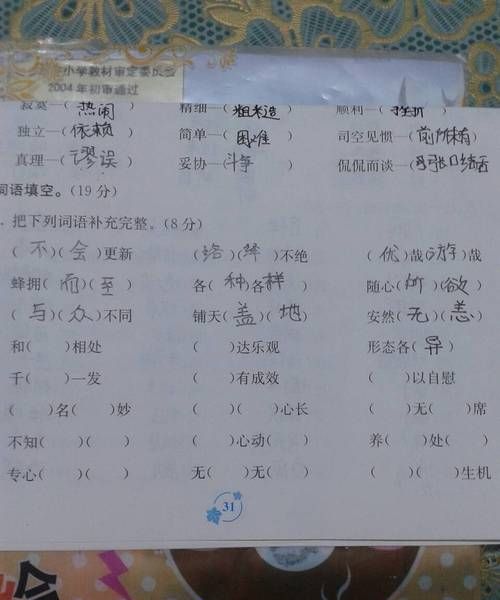 小学教材审定委员会
2004年初审通过
寂寞—(热闹) 精细—(粗糙) 顺利—(挫折)
独立—(依赖) 简单—(困难) 司空见惯—(前所未有)
真理—(谬误) 妥协—(斗争) 侃侃而谈—(张口结舌)
词语填空。(19分)
. 把下列词语补充完整。(8分)
(不)(会)更新 (络)(绎)不绝 (优)哉(游)哉
蜂拥(而)(至) 各(种)各(样) 随心(所)(欲)
(与)(众)不同 铺天(盖)(地) 安然(无)(恙)
和( )相处 ( )达乐观 形态各(异)
千( )一发 ( )有成效 ( )以自慰
( )名( )妙 ( )( )心长 ( )无( )席
不知( )( ) ( )心动( ) 养( )处( )
专心( )( ) 无( )无( ) ( )( )生机
31